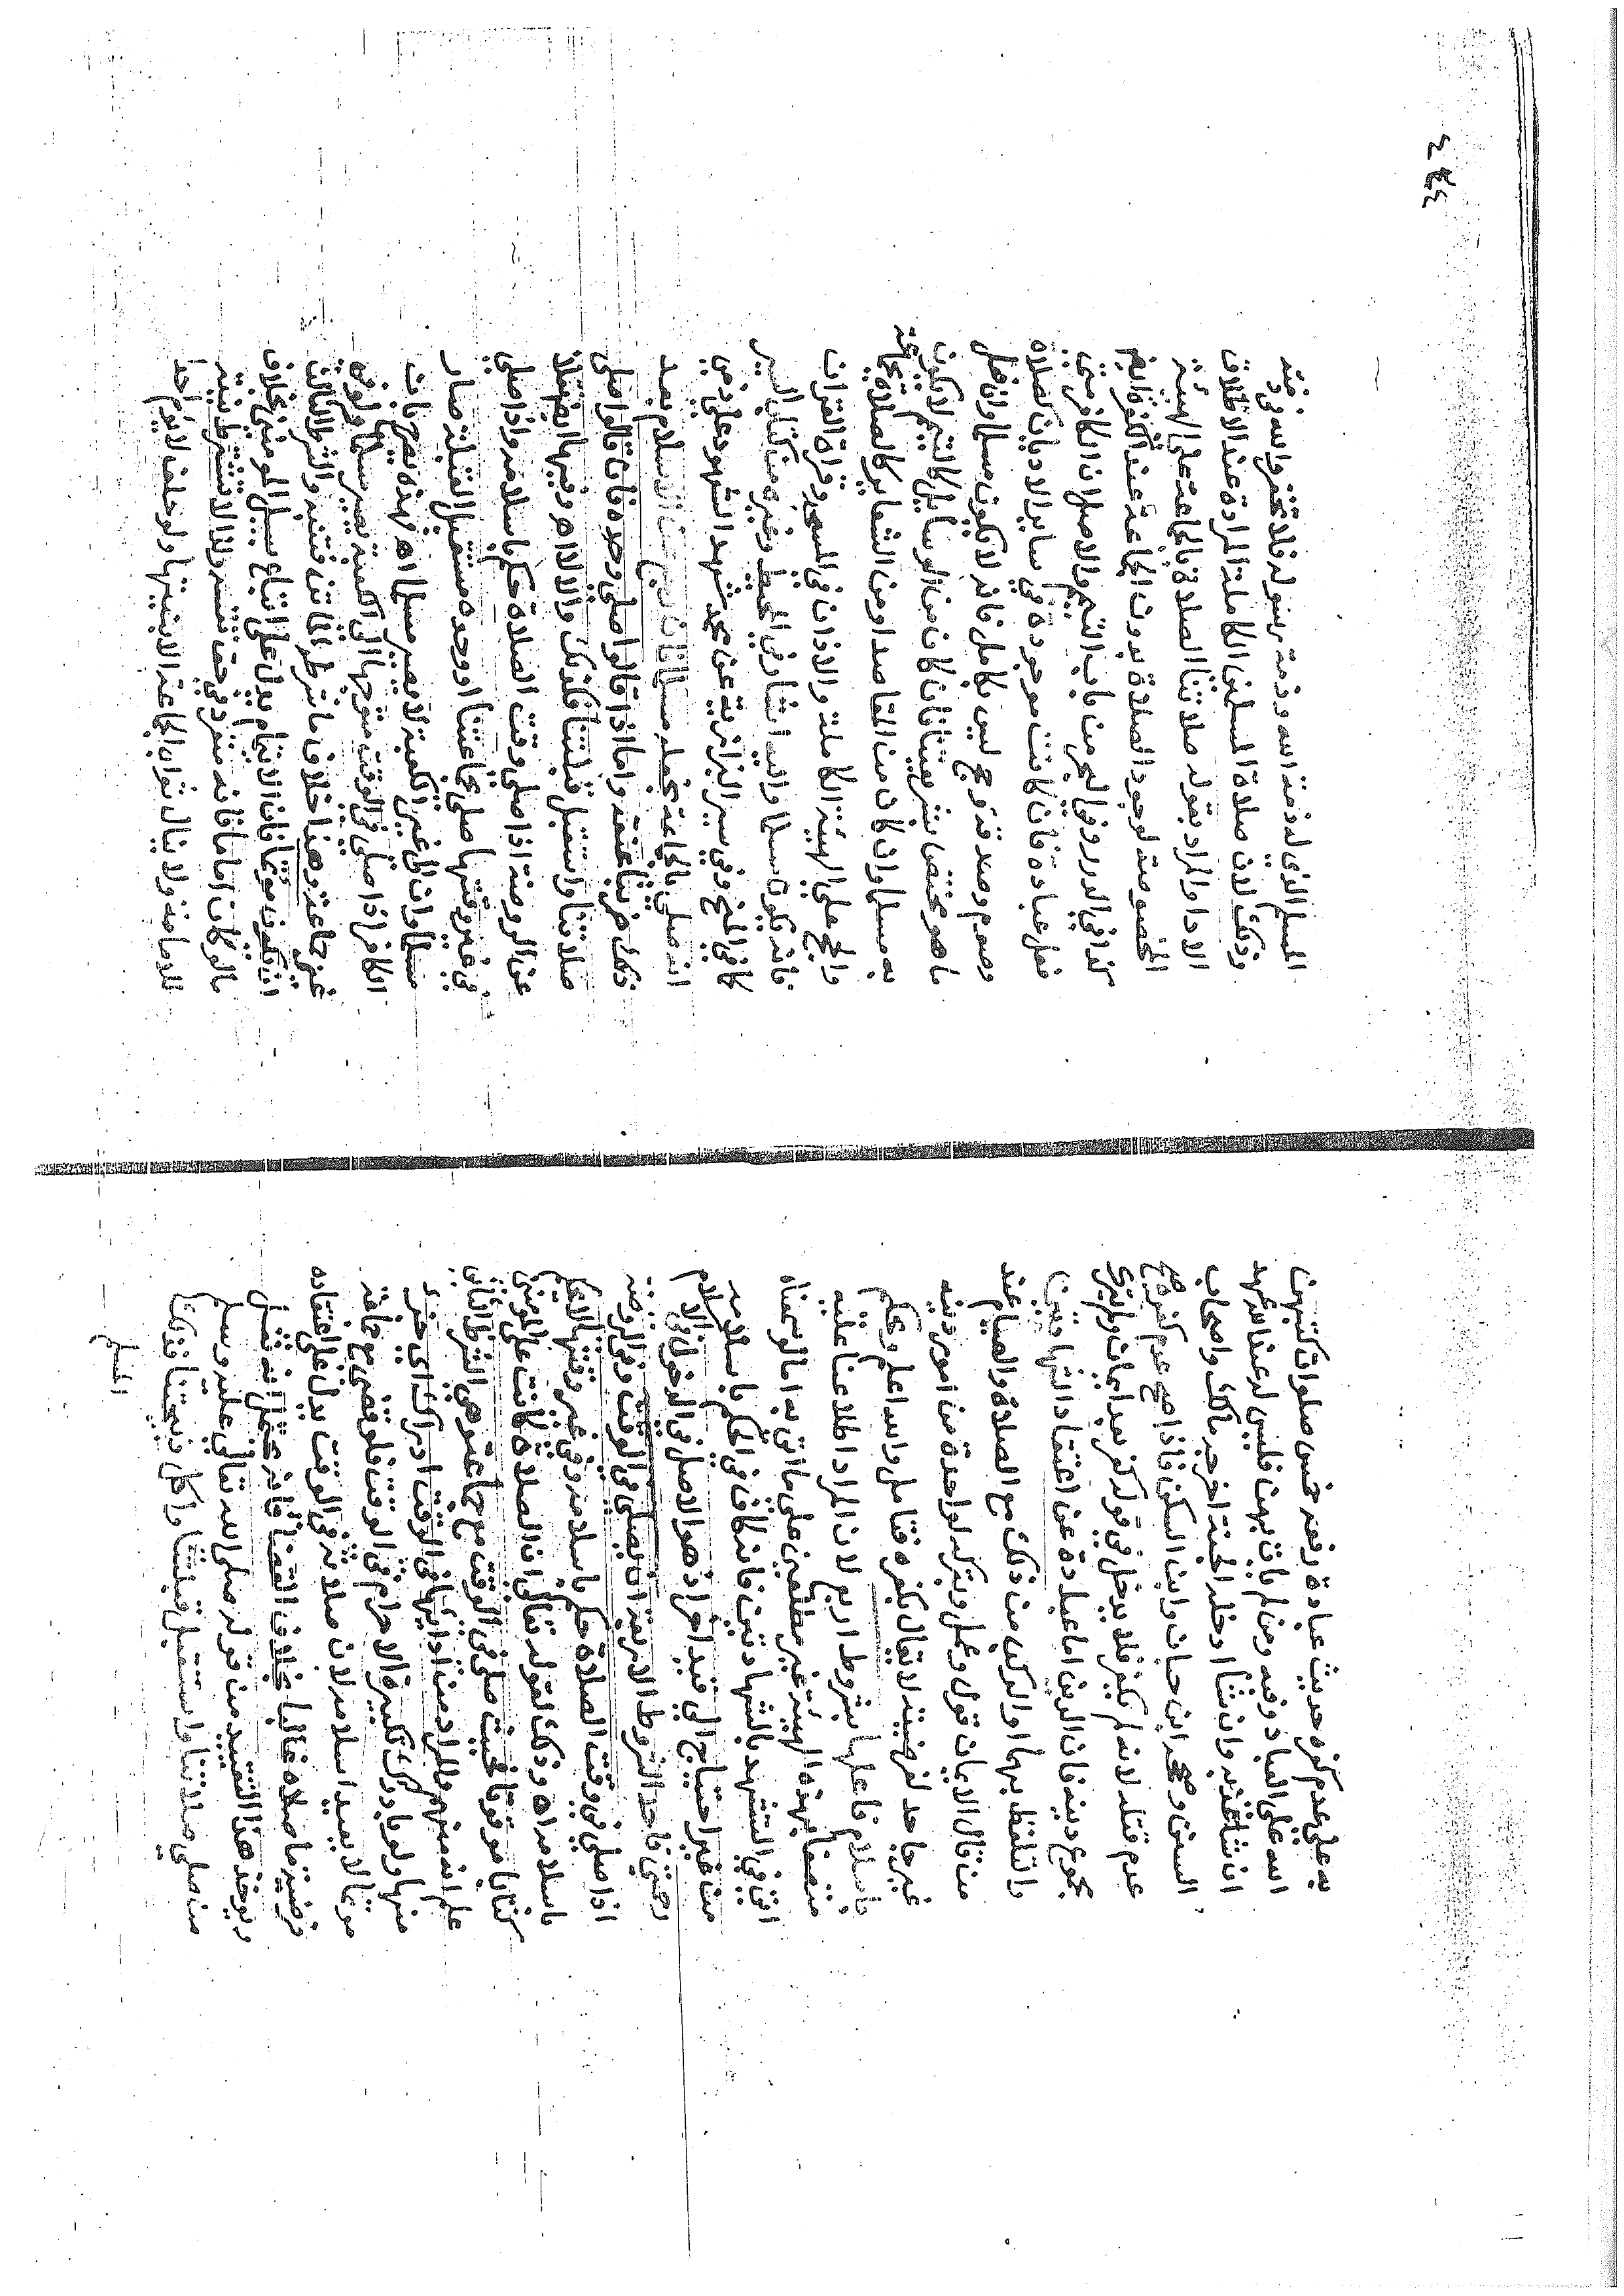 به على عدم كفره حديث عبادة رفعه خمس صلوات كتبهن
الله على العباد وفيه ومن لم يات بهن فليس له عند الله عهد
ان شا عذبه وان شا ادخله الجنة اخرجه مالك واصحاب
السنن وصححه ابن حبان وابن السكن فاذا صح عدم كفره صح
عدم قتله لانه لم يكفر فلا يدخل في قوله كفر بعد ايمان ولم يترك
مجموع دينه فان الدين اما عبادة عن اعتقاد الشهادتين
والتلفظ بهما او المركب من ذلك مع الصلاة والصيام عند
من قال الايمان قول وعمل وبتركه لواحدة من امور دينه
غير جاحد لفرضيته لا يقال بكفره فتامل والله اعلم وحكم
باسلام فاعلها بشروط اربع لان المراد اطلاعنا عليه
متصفا بهذه الهيئة غير مطلعين على ما اتى به اما لو سمعناه
اتى في التشهد بالشهادتين فانه كاف في الحكم باسلامه
من غير احتياج الى قيد اخر اذ هو الاصل في الدخول في الاسلام
فاحد الشروط الاربعة ان يصلى في الوقت وفي الروضة
اذا صلى في وقت الصلاة حكم باسلامه وفي غير وقتها لا يحكم
باسلامه اه وذلك لقوله تعالى ان الصلاة كانت على المومنين
كتابا موقوتا فحيث صلى في الوقت مع جماعته وهي الشرط الثاني
علم انه منهم والمراد من ادايها في الوقت ادراك اي جزء
منها ولو بادراك تكبيرة الاحرام في الوقت فلو مضى مع
موتما لا يفيد اسلامه لان صلاته في الوقت يدل على اعتقاده
فرضية ما صلاه غالبا بخلاف القضا فانه يحتمل انه تنفل
ويوخذ هذا التقييد من قوله صلى الله تعالى عليه وسلم
من صلى صلاتنا واستقبل قبلتنا واكل ذبيحتنا فذلك
المسلم
المسلم الذي له ذمة الله وذمة رسوله فلا تخفروا الله في ذمته
وذلك لان صلاة المسلمين الكاملة المرادة عند الاطلاق
الادا والمراد بقوله صلاتنا الصلاة بالجماعة على الهيئة
المخصوصة لوجود الصلاة بدون الجماعة عند الكفرة ايضا
كذا في الدرر وفي البحر من باب التيمم والاصل ان الكافر متى
فعل عبادة فان كانت موجودة في ساير الاديان كصلاة
وصوم وصدقة وحج ليس بكامل فانه لا يكون مسلما وان فعل
ما هو مختص بشرعنا فان كان من الوسايل كالتيمم لا يكون
به مسلما وان كان من المقاصد او من الشعاير كالصلاة بجماعة
والحج على الهيئة الكاملة والاذان في المسجد وقراة القران
فانه يكون مسلما واليه اشار في المحيط وغيره من كتاب السير
كما في المنح وفي سير البزازية عن محمد شهد الشهود على ذمي
انه صلى بالجماعة نجعله مسلما فان رجع عن الاسلام بعد
ذلك ضربنا عنقه واما اذا قالوا صلى وحده فان قالوا صلى
صلاتنا واستقبل قبلتنا فكذلك والا لا اه وفيها ايضا نقلا
عن الروضة اذا صلى وقت الصلاة حكم باسلامه واذا صلى
في غير وقتها صلى بجماعتنا او وحده مستقبل القبلة صار
مسلما وان الى غير الكعبة لا يصير مسلما اه فهذه تصرح بان
الكافر اذا صلى في الوقت متوجها الى الكعبة يصير مسلما ولو من
غير جماعة وهذا خلاف ما شرط الماتن فتنبه والشرط الثالث
ان يكون موتما فان الايتمام يدل على اتباع سبيل المومنين بخلاف
ما لو كان اماما فانه منفرد في حق نفسه ولذا لا تشترط نيته
للامامة ولا ينال ثواب الجماعة الا بنيتها ولو حلف لا يوم احدا